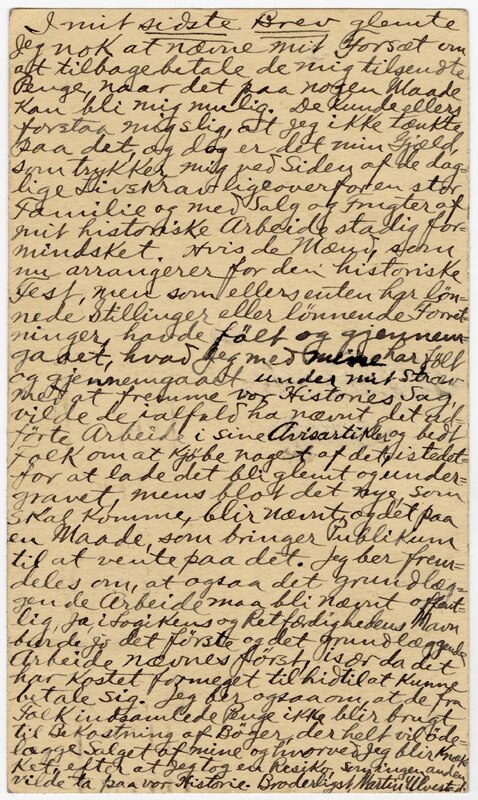 I mit sidste Brev glemte
Jeg nok at nævne mit Forsæt om
at tilbagebetale de mig tilsendte
Penge, naar det paa nogen Maade
kan bli mig mulig. De kunde ellers
forstaa mig slig, at jeg ikke tænkte
paa det, og dog er det min Gjæld,
som trykker mig ved Siden af de dag-
lige Livskrav ligeoverfor en stor
Familie og med Salg og Frugter af
mit historiske Arbeide stadig for-
mindsket. Hvis de Mænd, som
nu arrangerer for den historiske
Fest, men som ellers enten har løn-
nede Stillinger eller lønnende Forret-
ninger, havde følt og gjennem-
gaaet, hvad jeg med mine har følt
og gjennemgaaet under mit Stræv
med at fremme vor Histories Sag,
vilde de ialfald ha nævnt det ud-
førte Arbeide i sine Avisartikler og bedt
Folk om at kjøbe noget af det, istedet-
for at lade det bli glemt og under-
gravet, mens blot det Nye, som
skal komme, blir nævnt, og det paa
en Maade, som bringer Publikum
til at vente paa det. Jeg ber frem-
deles om, at ogsaa det grundlæg-
gende Arbeide maa bli nævnt offent-
lig, ja i Logikens og Retfærdighedens Navn
burde jo det første og det grundlæggende
Arbeide nævnes først, især da det
har kostet for meget til hidtil at kunne
betale sig. Jeg ber ogsaa om, at de fra
Folk indsamlede Penge ikke blir brugt
til Bekostning af Bøger, der helt vil øde-
lægge Salget af mine og hvorved Jeg blir knæk-
ket, efter at Jeg tog en Risiko, som ingen anden
vilde ta paa vor Historie. Broderligst, Martin Ulvestad